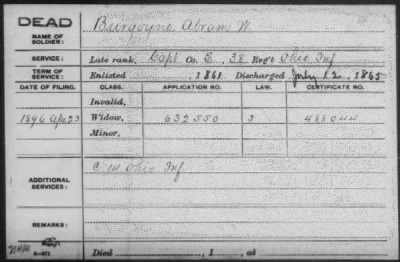 DEAD Burgoyne, Abram W.
NAME OF SOLDIER:
SERVICE: Late rank, Capt Co. E, 38 Reg't Ohio Inf
TERM OF SERVICE: Enlisted , 1861 Discharged July 12, 1865
DATE OF FILING. CLASS. APPLICATION NO. LAW. CERTIFICATE NO.
Invalid,
1896 Apr 23 Widow, 632550 3 488044
Minor,
ADDITIONAL SERVICES: Ohio Inf
REMARKS:
Died , 1 , at